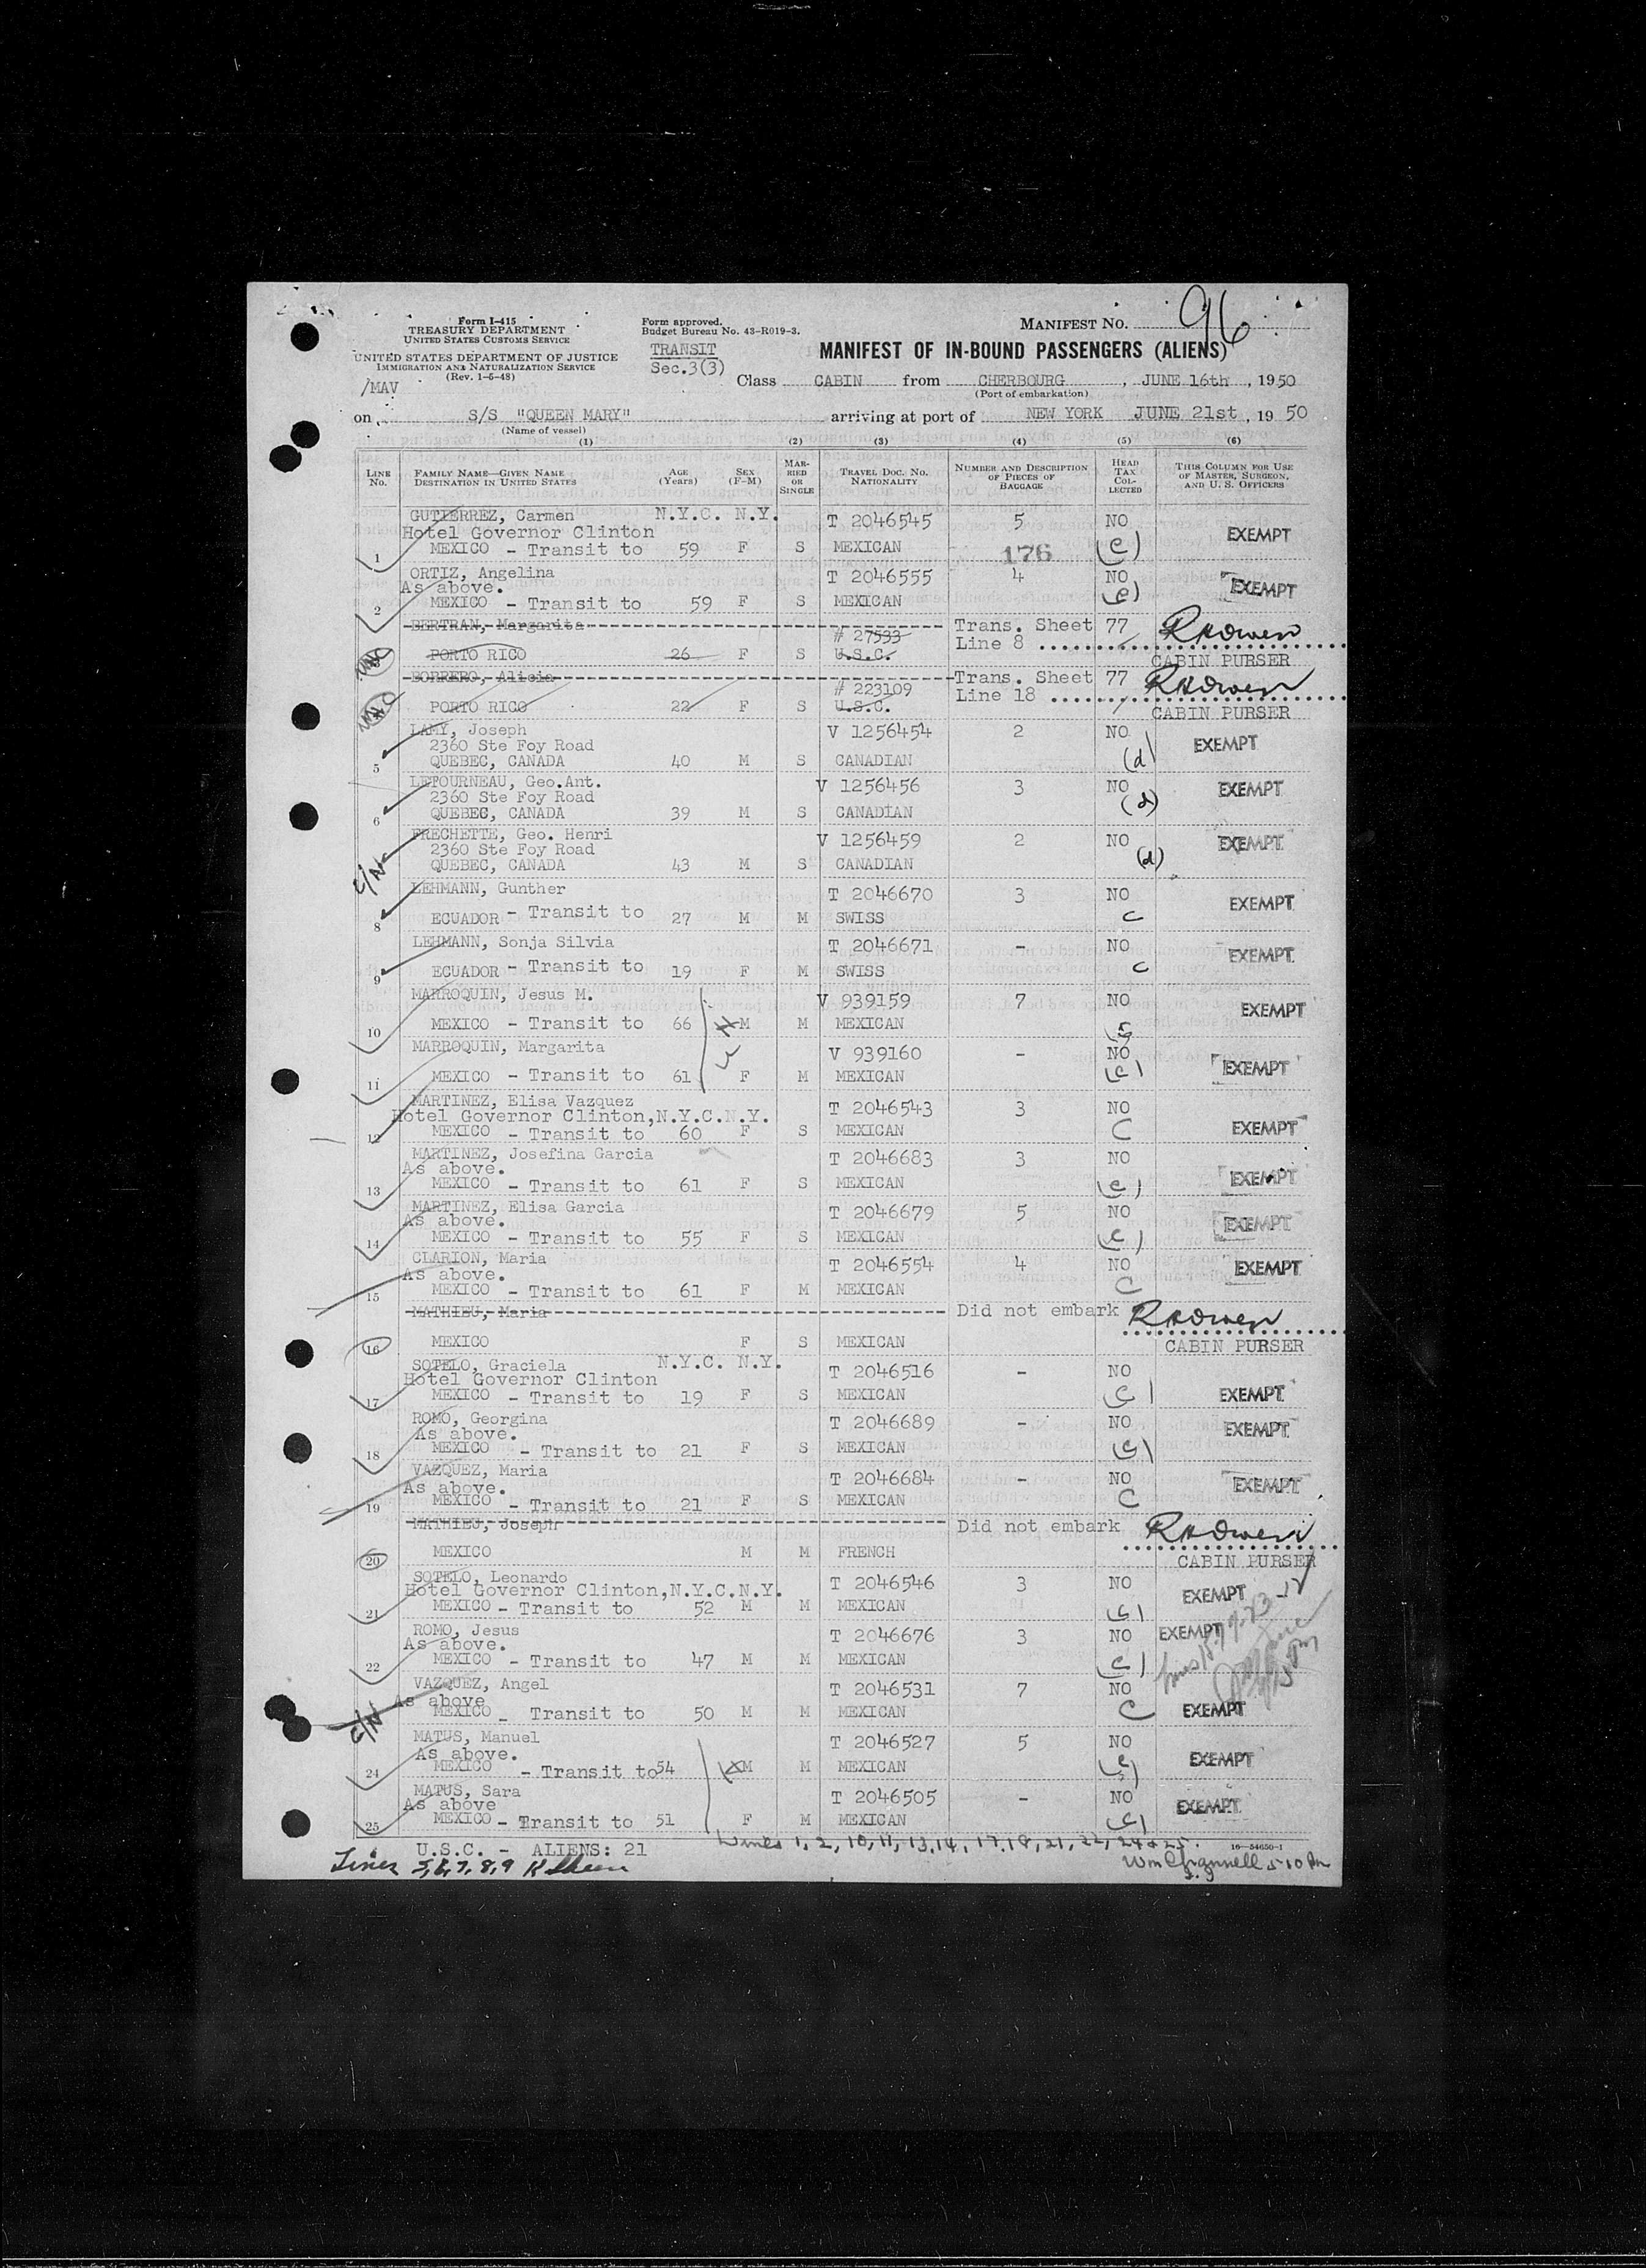 Form I-415
TREASURY DEPARTMENT
UNITED STATES CUSTOMS SERVICE
UNITED STATES DEPARTMENT OF JUSTICE
IMMIGRATION AND NATURALIZATION SERVICE
(Rev. 1-6-48)
/MAV
Form approved.
Budget Bureau No. 43-R019-3.
TRANSIT
Sec.3(3)
MANIFEST NO. 96
MANIFEST OF IN-BOUND PASSENGERS (ALIENS)
Class CABIN from CHERBOURG, JUNE 16th, 1950
(Port of embarkation)
on S/S "QUEEN MARY" arriving at port of NEW YORK JUNE 21st, 19 50
(Name of vessel)
(1) (2) (3) (4) (5) (6)
LINE NO. FAMILY NAME—GIVEN NAME DESTINATION IN UNITED STATES AGE (Years) SEX (F-M) MARRIED OR SINGLE TRAVEL DOC. NO. NATIONALITY NUMBER AND DESCRIPTION OF PIECES OF BAGGAGE HEAD TAX COLLECTED THIS COLUMN FOR USE OF MASTER, SURGEON, AND U. S. OFFICERS
GUTIERREZ, Carmen N.Y.C. N.Y. T 2046545 5 NO EXEMPT
Hotel Governor Clinton
1 MEXICO - Transit to 59 F S MEXICAN 176 (c)
ORTIZ, Angelina T 2046555 4 NO EXEMPT
As above.
2 MEXICO - Transit to 59 F S MEXICAN (c)
BERTRAN, Margarita # 27533 Trans. Sheet 77 RHOwen
Line 8
PORTO RICO 26 F S U.S.C. CABIN PURSER
BORRERO, Alicia # 223109 Trans. Sheet 77 RHOwen
Line 18
PORTO RICO 22 F S U.S.C. CABIN PURSER
LAMY, Joseph V 1256454 2 NO EXEMPT
2360 Ste Foy Road
5 QUEBEC, CANADA 40 M S CANADIAN (d)
LETOURNEAU, Geo.Ant. V 1256456 3 NO EXEMPT
2360 Ste Foy Road
6 QUEBEC, CANADA 39 M S CANADIAN (d)
FRECHETTE, Geo. Henri V 1256459 2 NO EXEMPT
2360 Ste Foy Road
QUEBEC, CANADA 43 M S CANADIAN (d)
LEHMANN, Gunther T 2046670 3 NO EXEMPT
8 ECUADOR - Transit to 27 M M SWISS c
LEHMANN, Sonja Silvia T 2046671 - NO EXEMPT
9 ECUADOR - Transit to 19 F M SWISS c
MARROQUIN, Jesus M. V 939159 7 NO EXEMPT
10 MEXICO - Transit to 66 M M MEXICAN
MARROQUIN, Margarita V 939160 - NO EXEMPT
11 MEXICO - Transit to 61 F M MEXICAN (c)
MARTINEZ, Elisa Vazquez T 2046543 3 NO EXEMPT
Hotel Governor Clinton, N.Y.C. N.Y.
12 MEXICO - Transit to 60 F S MEXICAN C
MARTINEZ, Josefina Garcia T 2046683 3 NO EXEMPT
As above.
13 MEXICO - Transit to 61 F S MEXICAN (c)
MARTINEZ, Elisa Garcia T 2046679 5 NO EXEMPT
As above.
14 MEXICO - Transit to 55 F S MEXICAN (c)
CLARION, Maria T 2046554 4 NO EXEMPT
As above.
15 MEXICO - Transit to 61 F M MEXICAN C
MATHIEU, Maria Did not embark RHOwen
16 MEXICO F S MEXICAN CABIN PURSER
SOTELO, Graciela N.Y.C. N.Y. T 2046516 - NO EXEMPT
Hotel Governor Clinton
17 MEXICO - Transit to 19 F S MEXICAN (c)
ROMO, Georgina T 2046689 - NO EXEMPT
As above.
18 MEXICO - Transit to 21 F S MEXICAN (c)
VAZQUEZ, Maria T 2046684 - NO EXEMPT
As above.
19 MEXICO - Transit to 21 F S MEXICAN C
MATHIEU, Joseph Did not embark RHOwen
20 MEXICO M M FRENCH CABIN PURSER
SOTELO, Leonardo T 2046546 3 NO EXEMPT
Hotel Governor Clinton, N.Y.C. N.Y.
21 MEXICO - Transit to 52 M M MEXICAN (c)
ROMO, Jesus T 2046676 3 NO EXEMPT
As above.
22 MEXICO - Transit to 47 M M MEXICAN (c)
VAZQUEZ, Angel T 2046531 7 NO
As above
MEXICO - Transit to 50 M M MEXICAN C EXEMPT
MATUS, Manuel T 2046527 5 NO EXEMPT
As above.
24 MEXICO - Transit to 54 M M MEXICAN (c)
MATUS, Sara T 2046505 - NO EXEMPT
As above
25 MEXICO - Transit to 51 F M MEXICAN (c)
U.S.C. - ALIENS: 21
Lines 1, 2, 10, 11, 13, 14, 17, 18, 21, 22, 24 & 25.
16-54650-1
Lines 5, 6, 7, 8, 9